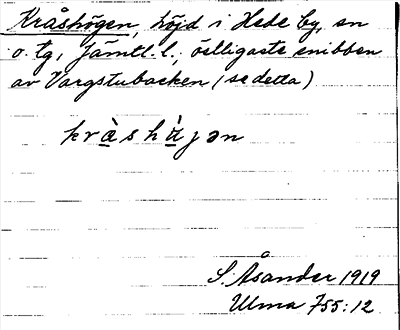 Kråshögen, höjd i Hede by, sn
o. tg, Jämtl. l.; östligaste snibben
av Vargstubacken (se detta)
kràshὰjən
S. Åsander 1919
Ulma 755:12